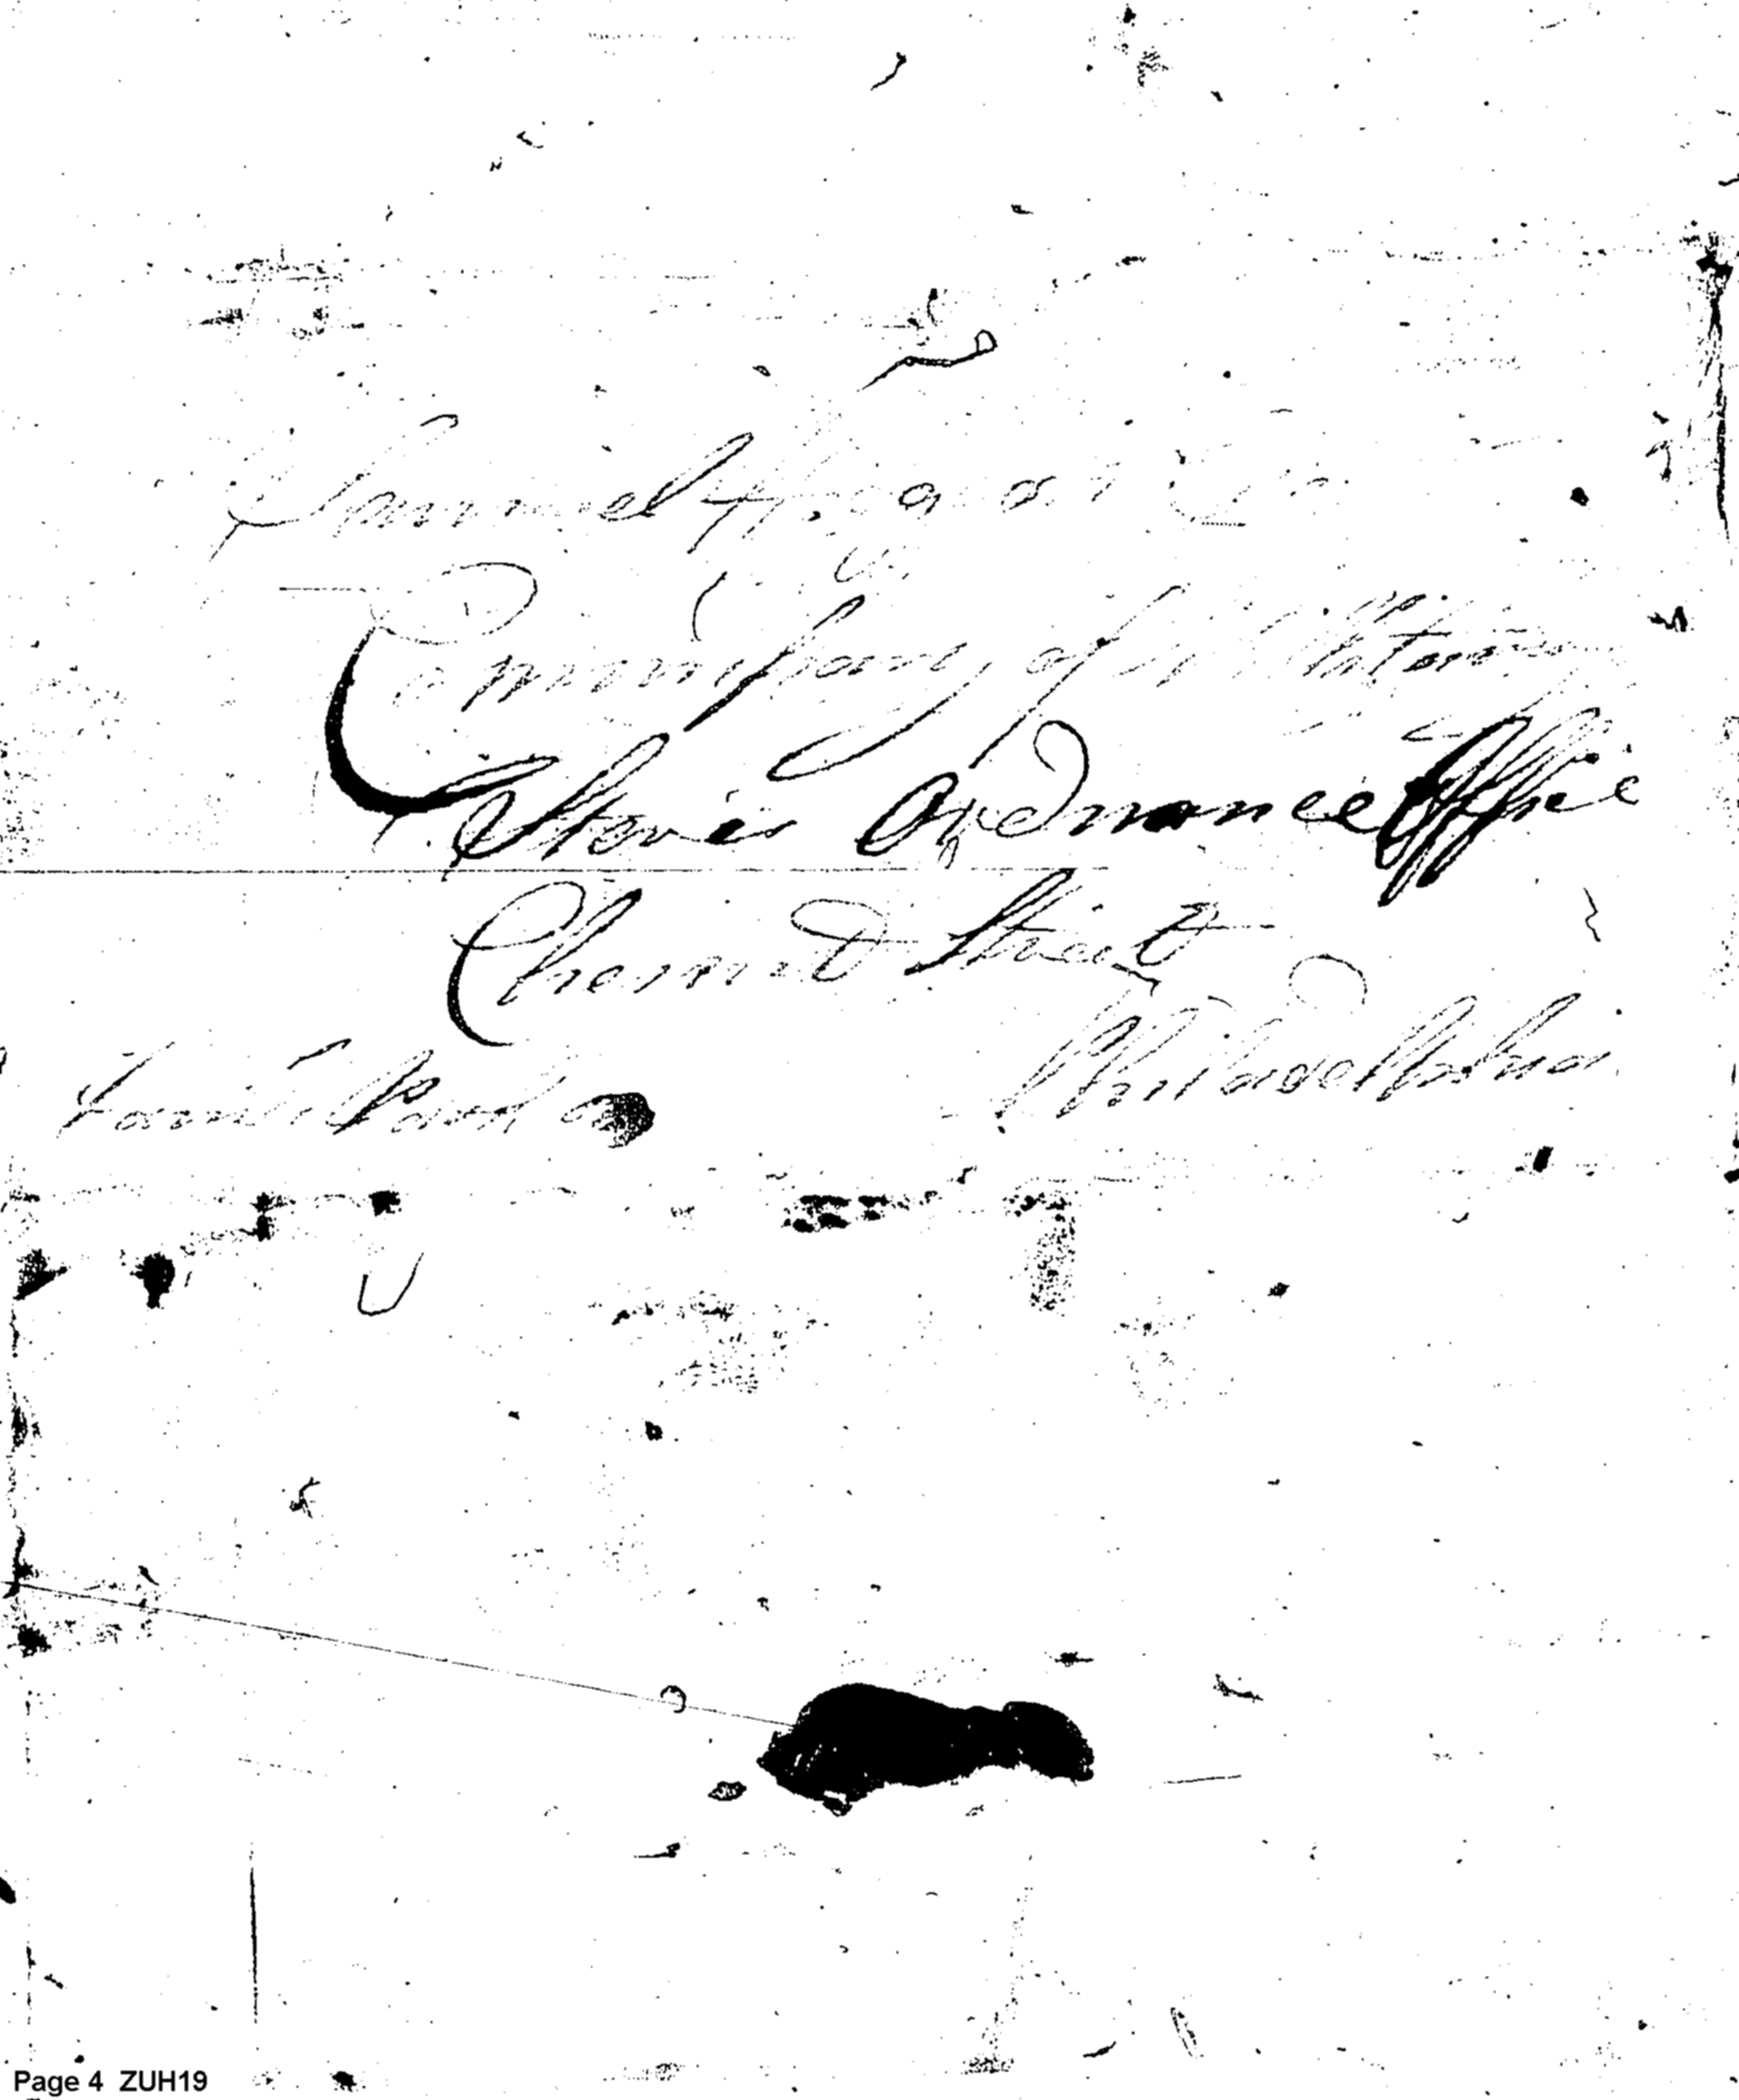 Samuel Hodgdon
Commissary of Military
Stores Ordnance Office
Chesnut Street
Philadelphia
Page 4 ZUH19